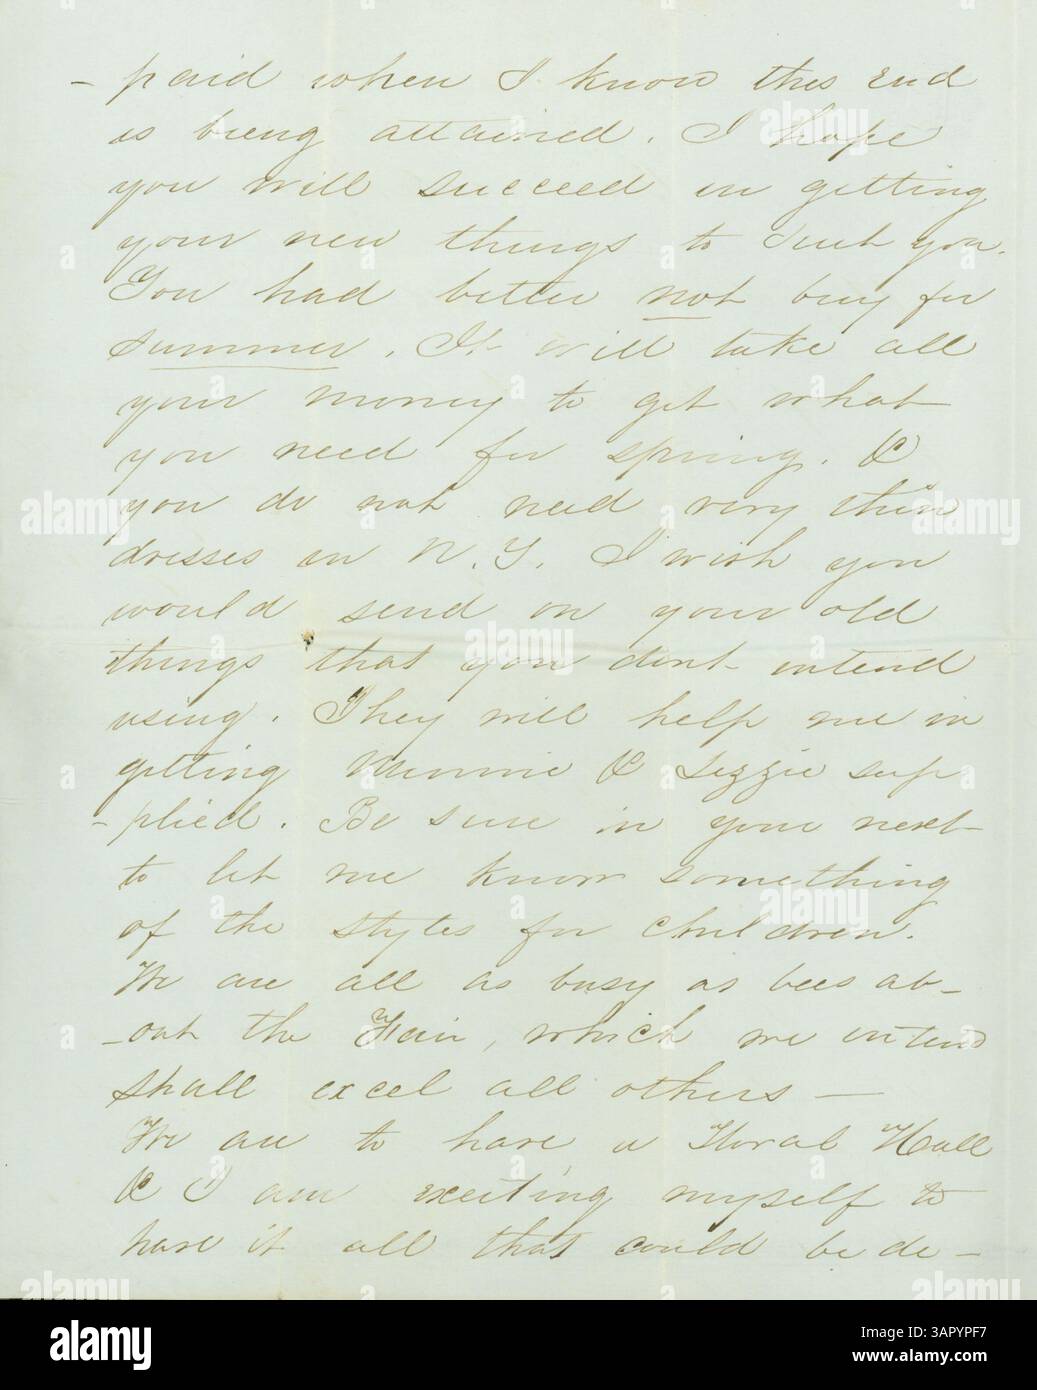 - paid when I know this end
is being attained. I hope
you will succeed in getting
your new things to suit you.
You had better not buy for
summer. It will take all
your money to get what
you need for spring. &
you do not need very thin
dresses in N.Y. I wish you
would send on your old
things that you dont intend
using. They will help me in
getting Minnie & Lizzie sup
-plied. Be sure in your next
to let me know something
of the styles for children.
We are all as busy as bees ab-
-out the Fair, which we intend
shall excel all others —
We are to have a Floral Hall
& I am exciting myself to
have it all that could be de-
alamy
Image ID: 3APYPF7
www.alamy.com